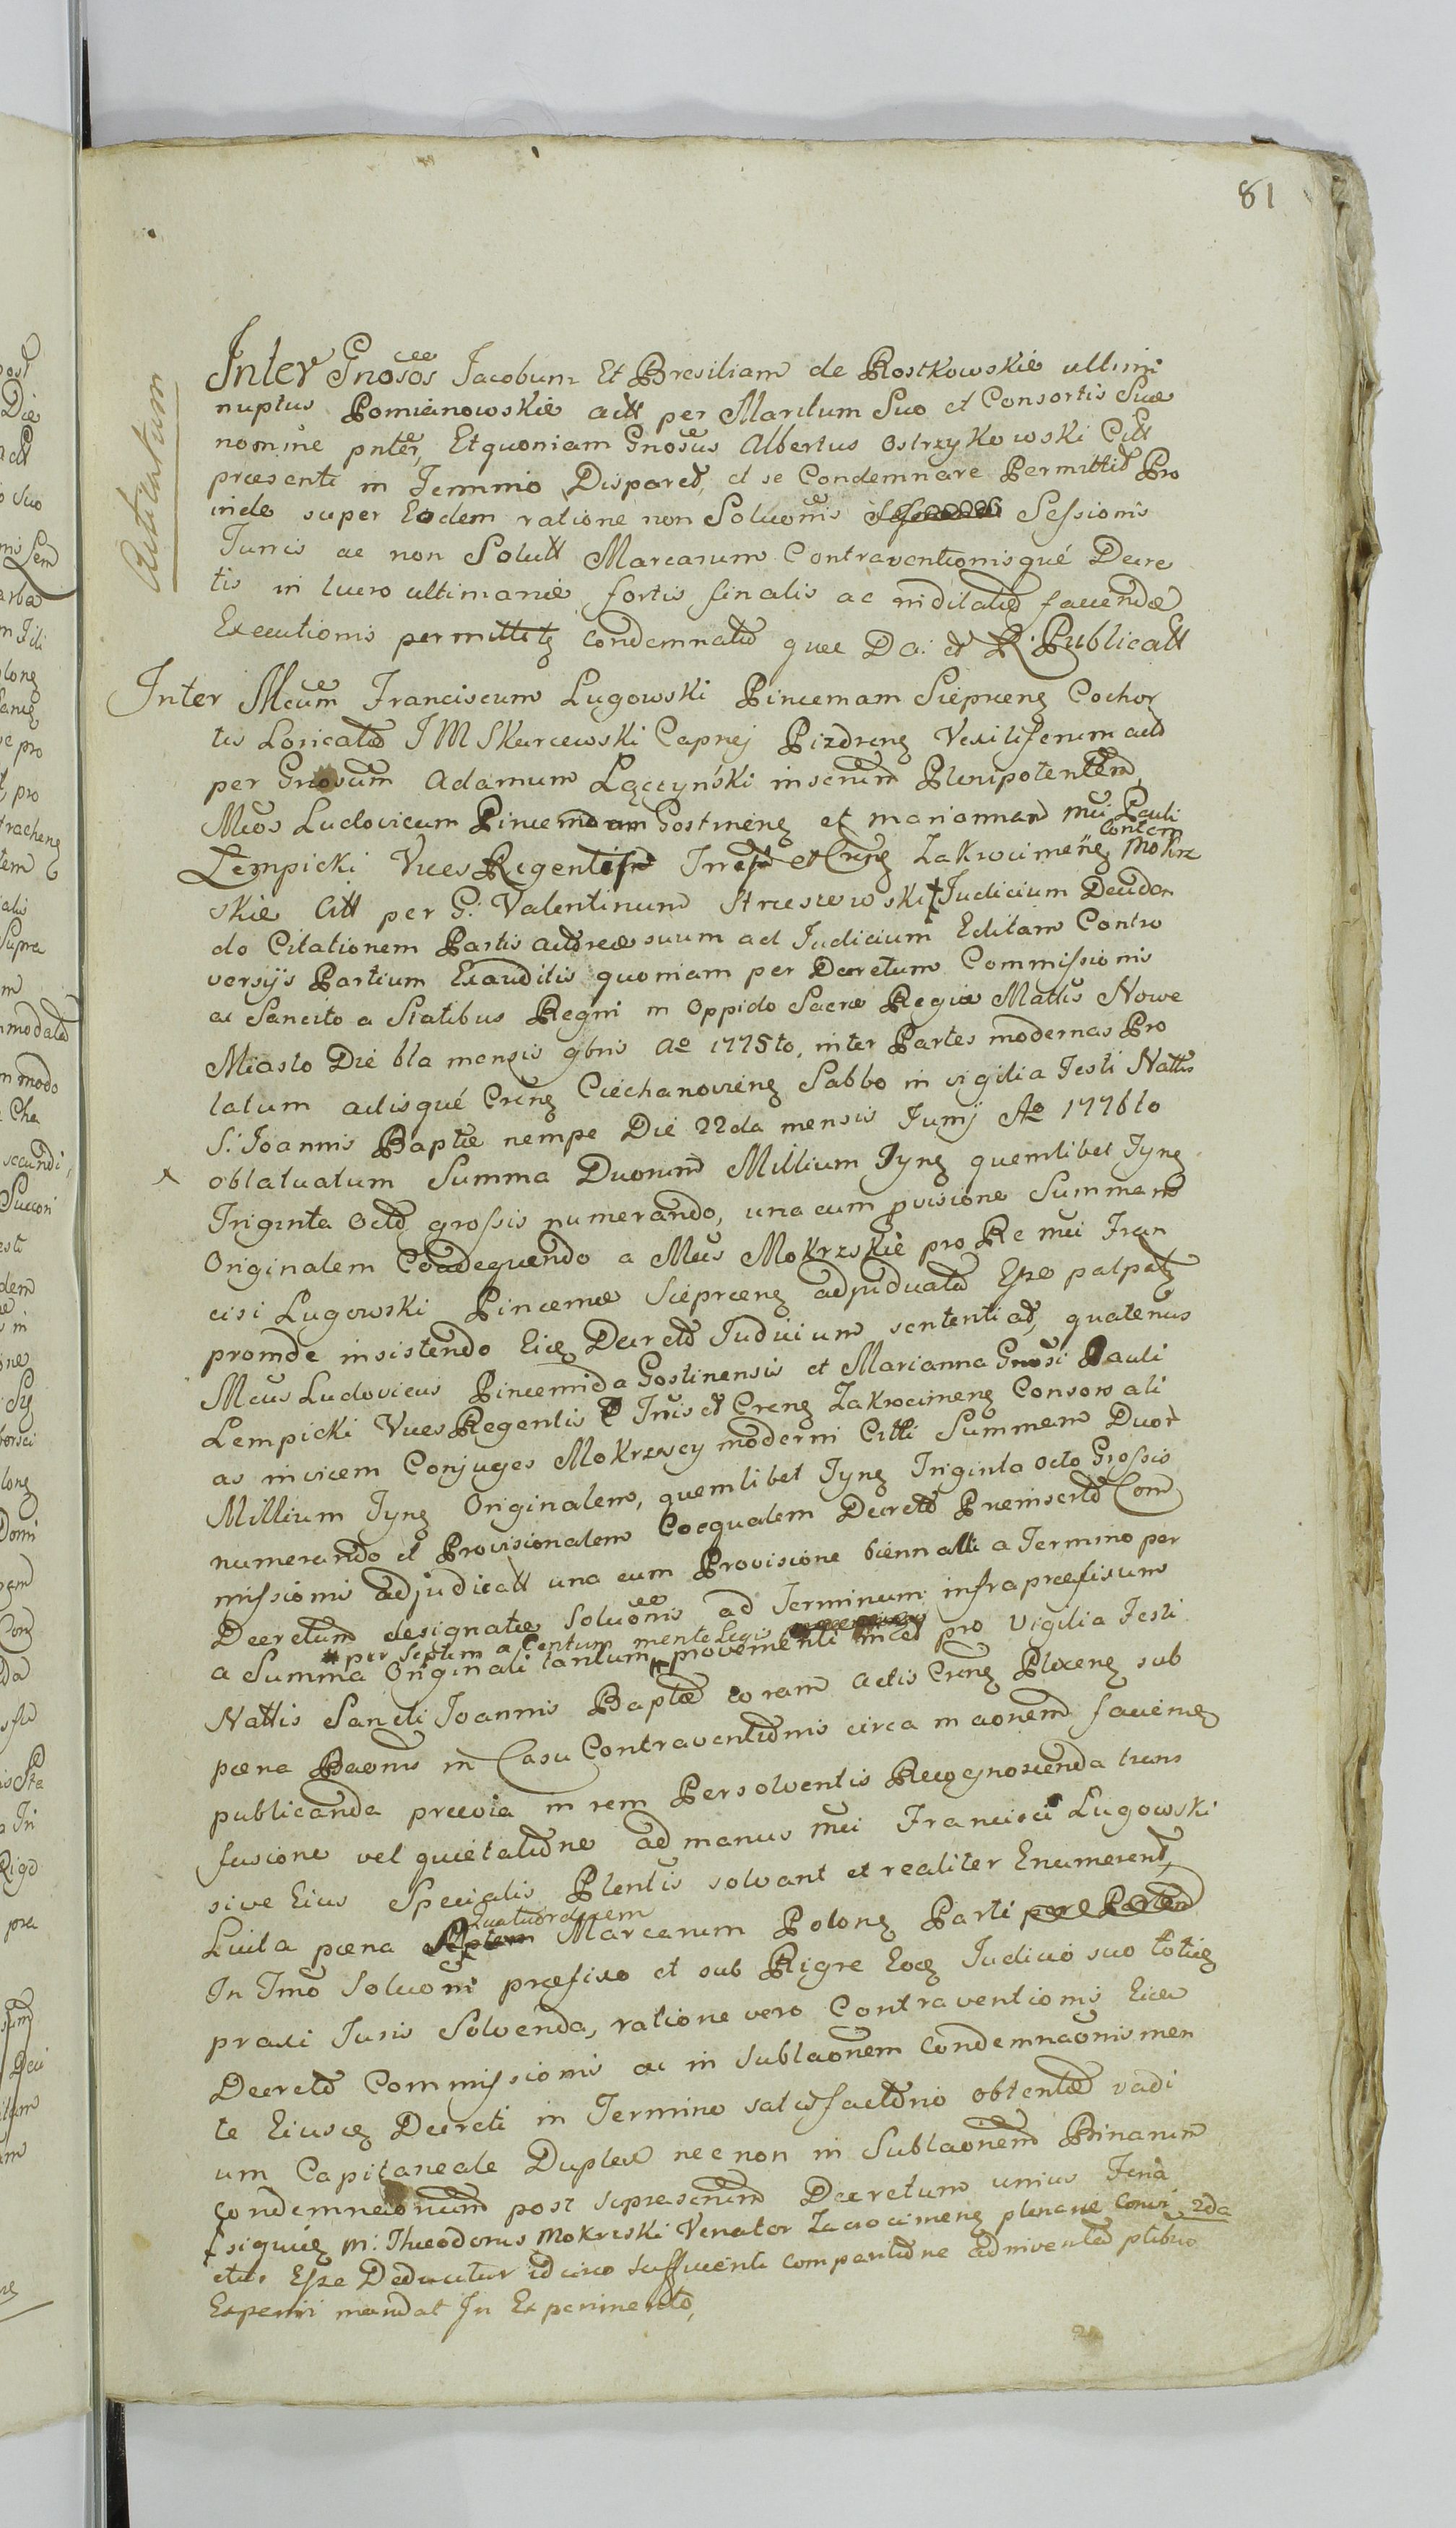 81
Actitatum
Inter Gnosos Jacobum Et Bresiliam de Rostkowskie ultimi
nuptus Pomianowskie actt per Maritum Suo et Consortis Suae
nomine pnter, Et quoniam Gnosus Albertus Ostrzykowski Citt
praesenti in Termino Disparet, et se Condemnare Permittit Pro
inde super Eodem ratione non Soluonis Sessionis
Juris ac non Solutt Marcarum Contraventionisqué Decre
tis in lucro ultimariae fortis finalis ac inditatae faciendae
Executionis permittitz condemnatio quae Da: et R: Publicatt
Inter Mcum Franciscum Lugowski Pincernam Sieprceng Cohor
tis Loricatae J M Skarcewski Capnej Pizdreng Vexiliferum act
per Gnosum Adamum Lączyński inserum Plenipotentem,
Mcos Ludovicum Pincernidam Gostineng et mariannam Mci Pauli
Lempicki Vices Regentis Creng Zakrocimeng Contem Mokrz
skie Citt per G: Valentinum Strceszewski Judicium Deciden
do Citationem Partis actoreae suum ad Judicium Editam Contro
versijs Partium Exauditis quoniam per Decretum Commissionis
ac Sancito a Statibus Regni in Oppido Sacrae Regiae Mattis Nowe
Miasto Die 6ta mensis 9bris Ao 1775to, inter Partes modernas Pro
latum actisqué Creng Ciechanovieng Sabbo in vigilia Festi Nattis
S: Joannis Baptae nempe Die 22da mensis Junij Ao 1776to
oblatuatum Summa Duorum Millium Tyng quemlibet Tyng
Triginta Octo grossis numerando, una cum pvisione Summam
Originalem Coadequendo a Mcis Mokrzskie pro Re mci Fran
cisi Lugowski Pincernae Sieprceng adjudicata Esse palpatz
proinde insistendo Eice Decreto Judicium sententiat, quatenus
Mcus Ludovicus Pincernida Gostinensis et Marianna Gnosi Pauli
Lempicki Vices Regentis Creng Zakrocimeng Consors ali
as invicem Conjuges Mokrzscy moderni Citti Summam Duor
Millium Tyng Originalem, quemlibet Tyng Triginta octo Grossis
numerando et Provisionalem Coequalem Decreto Praeinserto Com
missionis adjudicatt una cum Provisione biennalli a Termino per
Decretum designatae Soluonis ad Terminum infrapraefixum
per Septem a Centum mente Legis
a Summa Originali tantum, provenienti pro Vigilia Festi
Nattis Sancti Joannis Baptae coram actis Creng Ploceng sub
paena Baonis in Casu Contraventionis circa aonem faciend
publicanda praevia in rem Persolventis Recognoscenda trans
fusione vel quietatione ad manus mci Francisci Lugowski
sive Eius Specialis Plentis solvant et realiter Enumerent,
Quatuordecem
Luita paena Septem Marcarum Polong Parti pare Parten
In Tmo Soluoni praefixo et sub Rigre Eoce Judicio suo toties
praxi Juris Solvenda, ratione vero Contraventionis Eice
Decreto Commissionis ac in Sublaonem Condemnaonis men
te Eiusce Decreti in Termino satisfactorio obtentae vadi
um Capitaneale Duplex nec non in Sublaonem Binarum
Condemnaonum post suprascrum Decretum unius
siquidz M: Theodorus Mokrzski Venator Zacrocimeng plenarie Convi 2da
ctus Esse Deducitur idcirco sufficienti comparitione adinventa ptibus
Experiri mandat In Experimento,